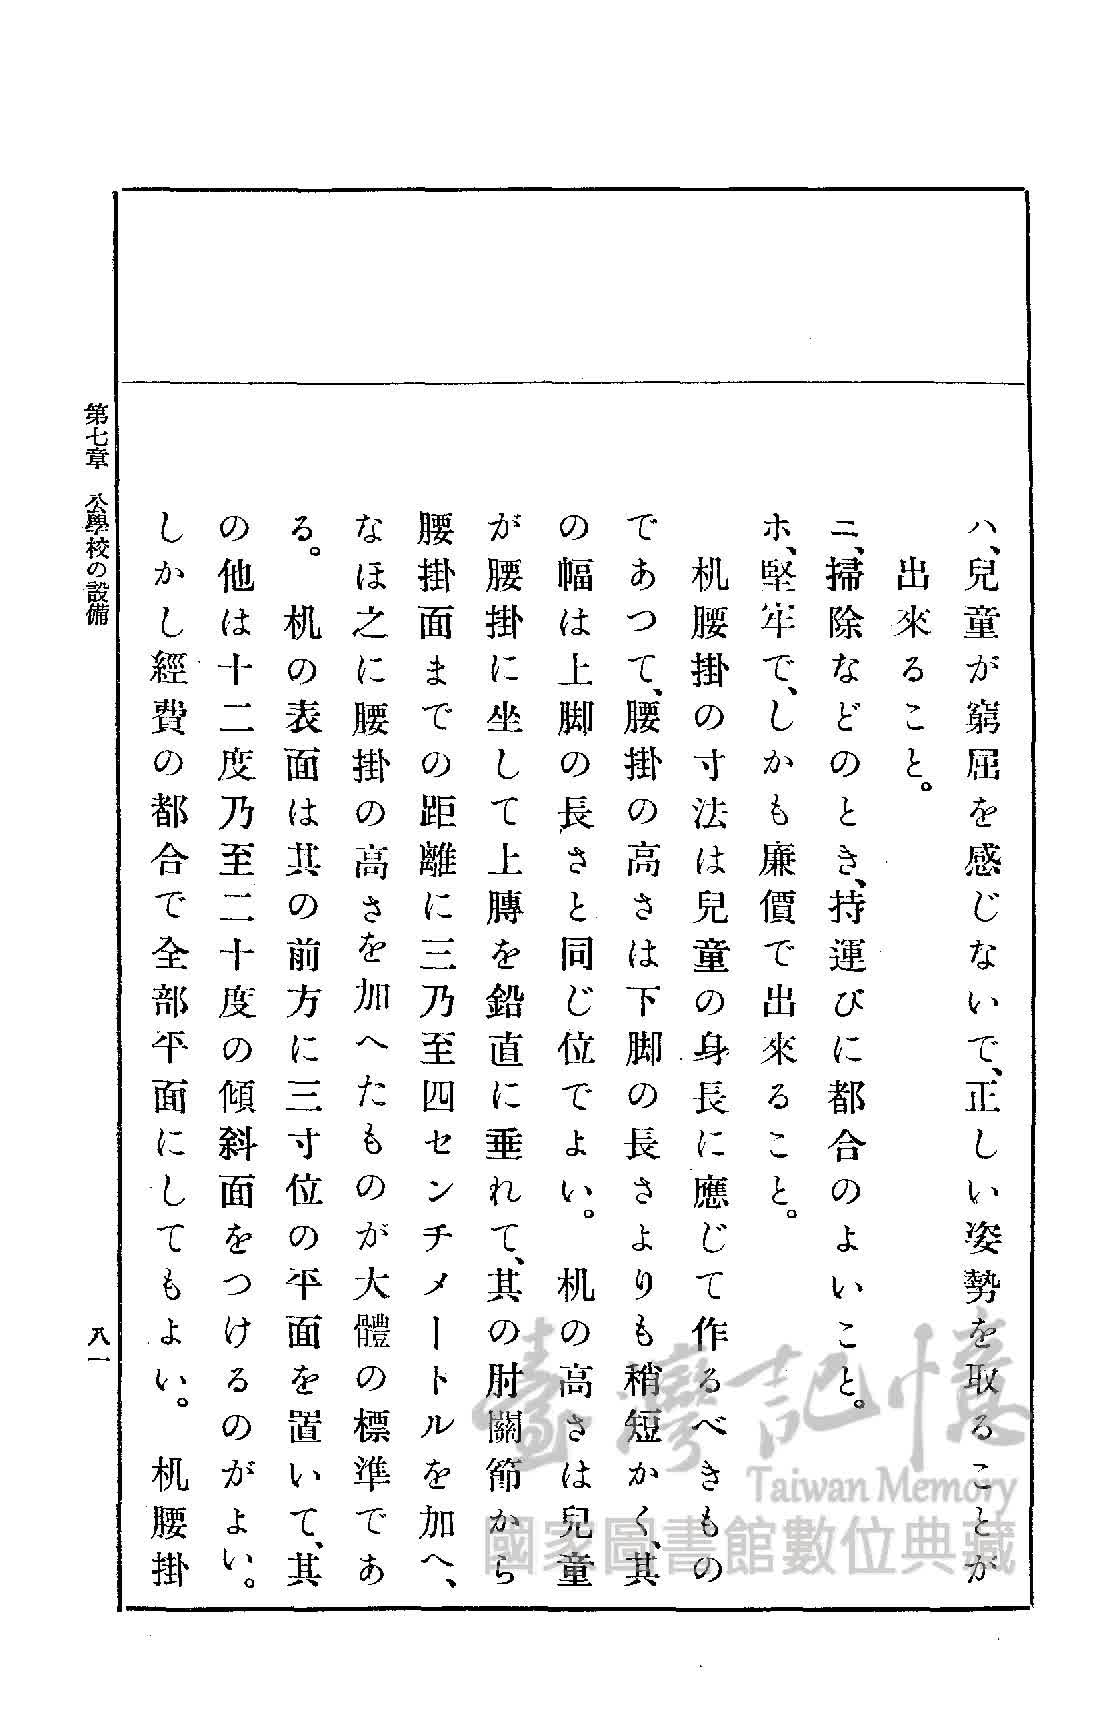 ハ、兒童が窮屈を感じないで、正しい姿勢を取ることが
出來ること。
ニ、掃除などのとき、持運びに都合のよいこと。
ホ、堅牢で、しかも廉價で出來ること。
机腰掛の寸法は兒童の身長に應じて作るべきもの
であつて、腰掛の高さは下脚の長さよりも稍短かく、其
の幅は上脚の長さと同じ位でよい。机の高さは兒童
が腰掛に坐して上膊を鉛直に垂れて、其の肘關節から
腰掛面までの距離に三乃至四センチメートルを加へ、
なほ之に腰掛の高さを加へたものが大體の標準であ
る。机の表面は其の前方に三寸位の平面を置いて、其
の他は十二度乃至二十度の傾斜面をつけるのがよい。
しかし經費の都合で全部平面にしてもよい。机腰掛
第七章 公學校の設備
八一
臺灣記憶
Taiwan Memory
國家圖書館數位典藏